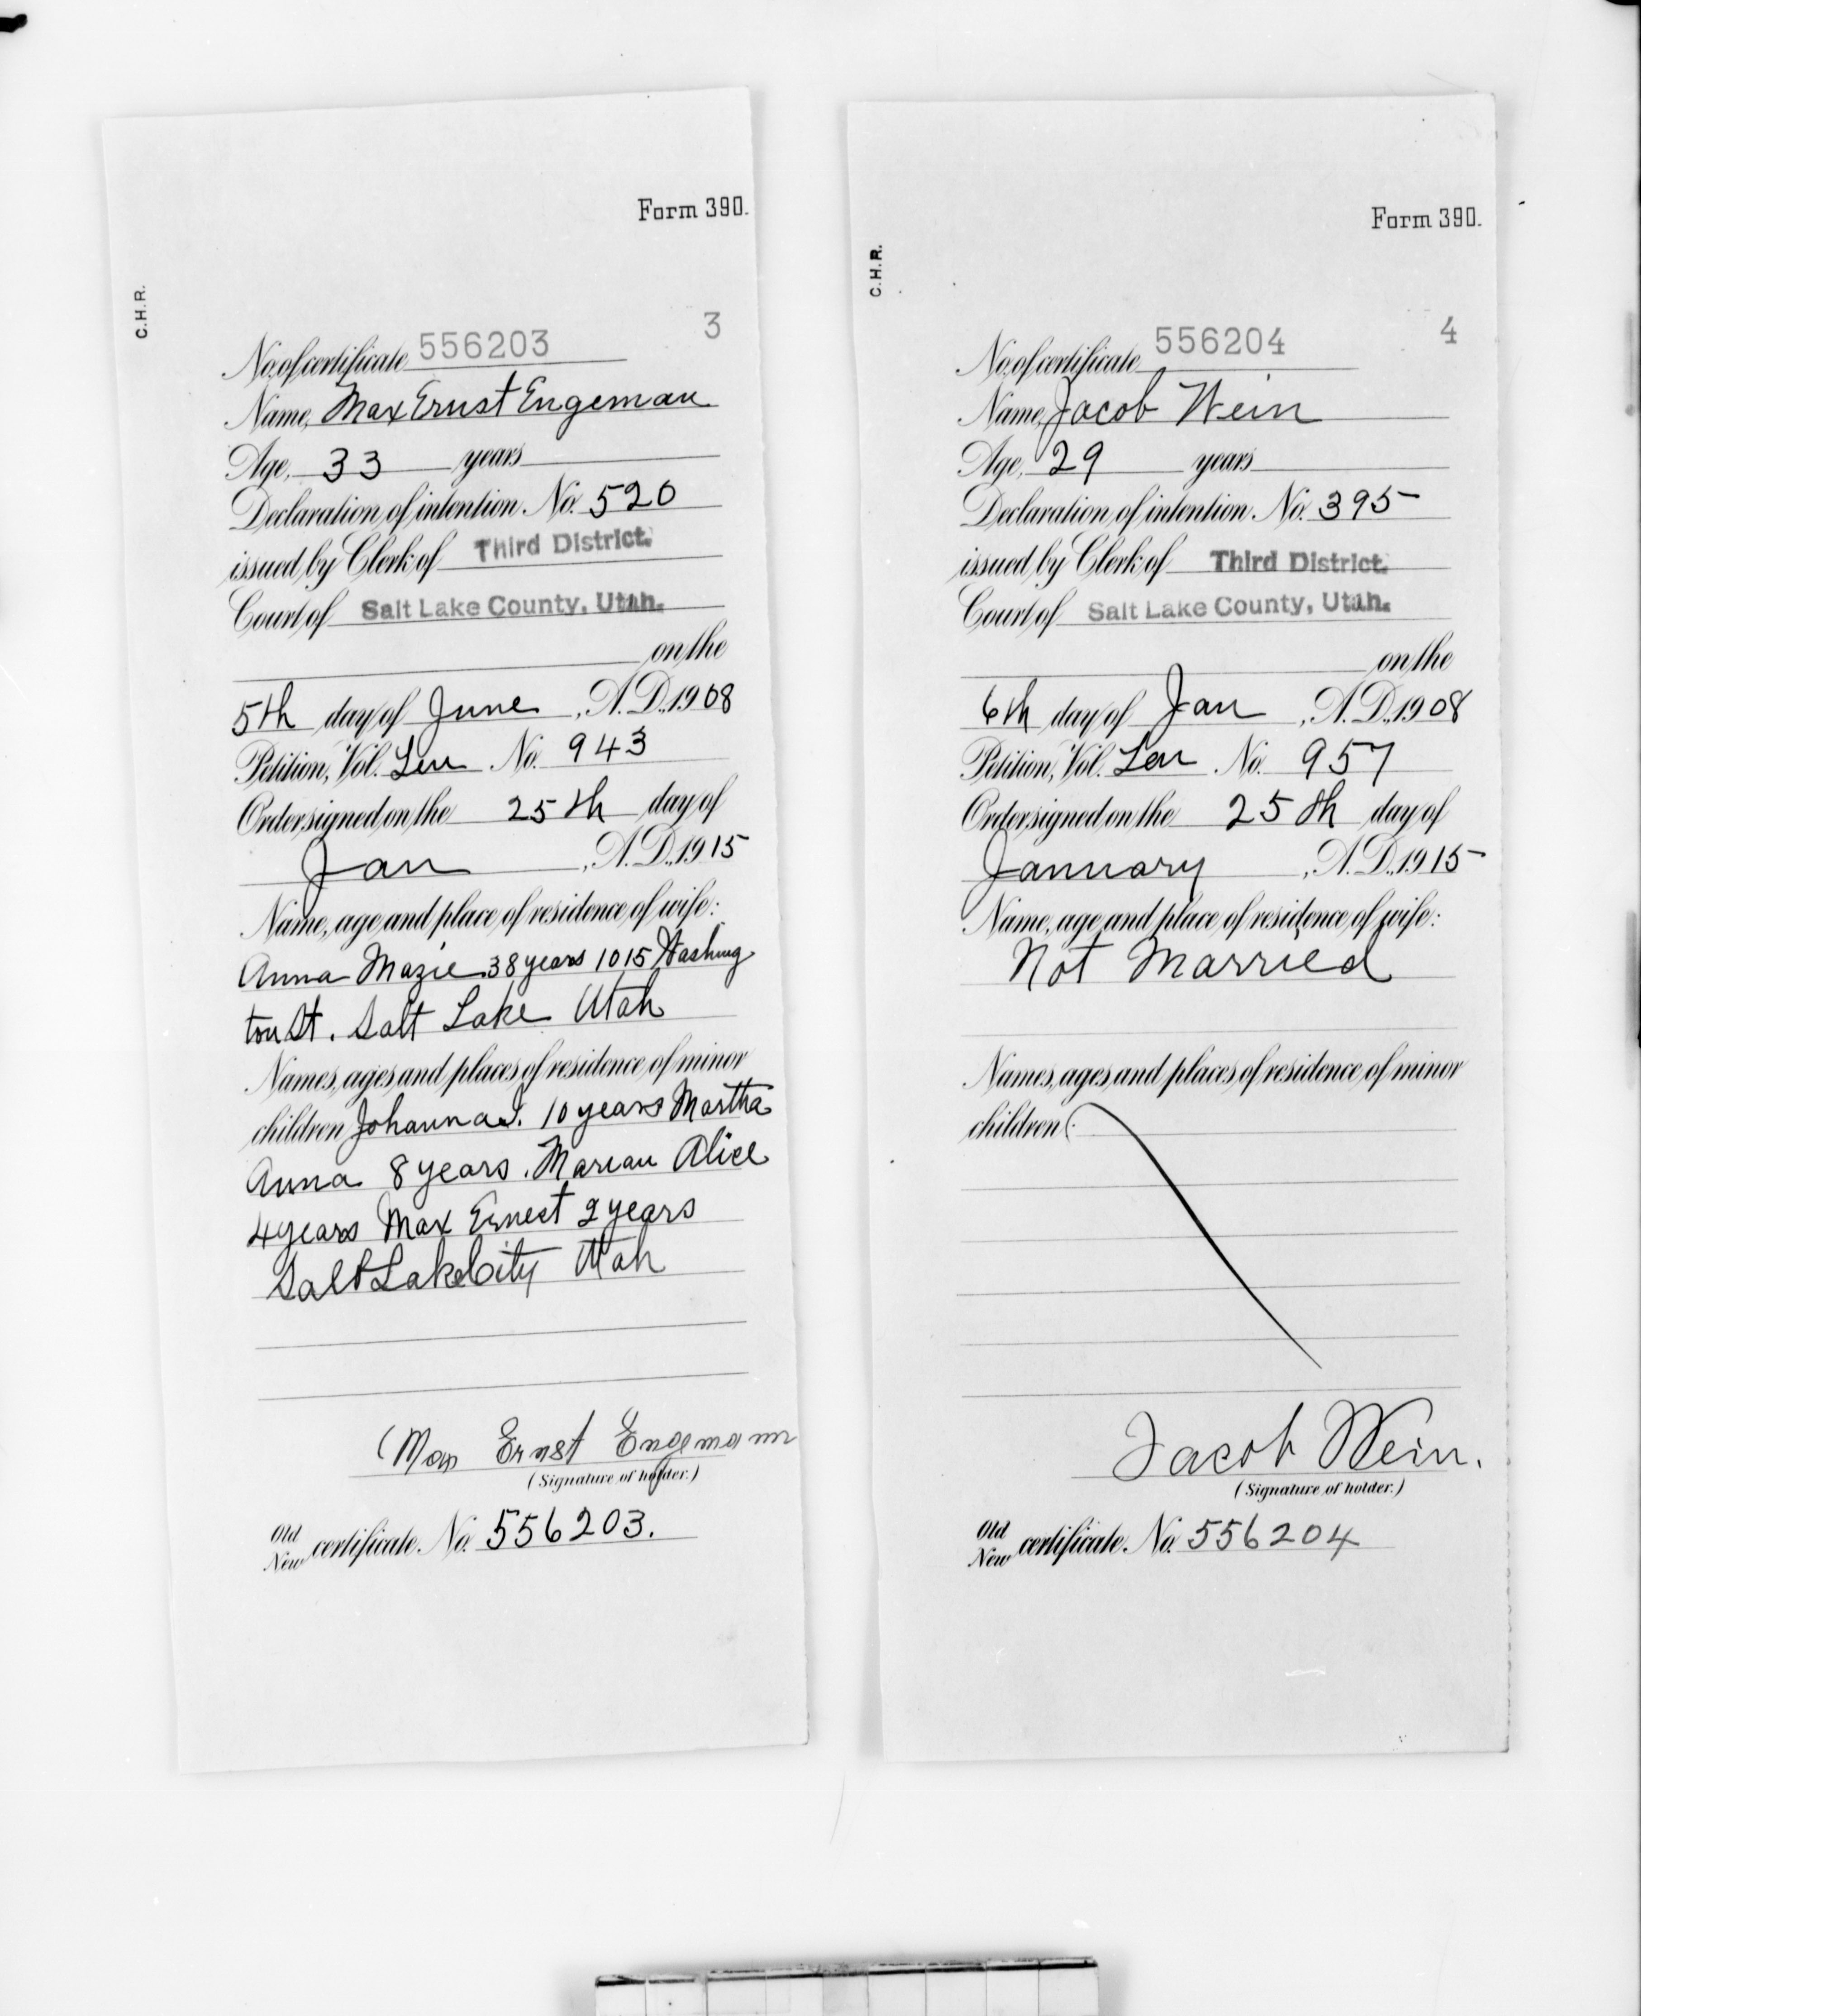 Form 390.
C.H.R.
3
No. of certificate 556203
Name, Max Ernst Engeman
Age, 33 years
Declaration of intention. No. 520
issued by Clerk of Third District.
Court of Salt Lake County, Utah.
on the
5th day of June, A. D., 1908
Petition, Vol. No. 943
Order signed on the 25th day of
Jan, A. D., 1915
Name, age and place of residence of wife:
Anna Mazie 38 years 1015 Washing
ton St. Salt Lake Utah
Names, ages and places of residence of minor
children Johanna 10 years Martha
Anna 8 years. Marian Alice
4 years Max Ernest 2 years
Salt Lake City Utah
Max Ernst Engemann
(Signature of holder.)
Old
New certificate. No. 556203.
Form 390.
C.H.R.
4
No. of certificate 556204
Name, Jacob Wein
Age, 29 years
Declaration of intention. No. 395
issued by Clerk of Third District.
Court of Salt Lake County, Utah.
on the
6th day of Jan, A. D., 1908
Petition, Vol. No. 957
Order signed on the 25th day of
January, A. D., 1915
Name, age and place of residence of wife:
Not Married
Names, ages and places of residence of minor
children
Jacob Wein.
(Signature of holder.)
Old
New certificate. No. 556204